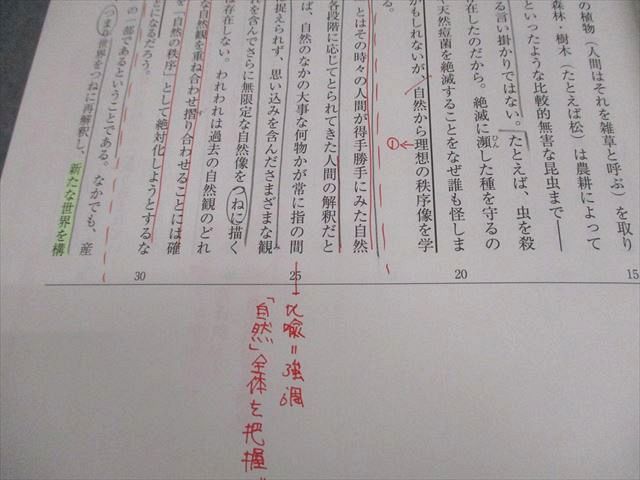 の植物（人間はそれを雑草と呼ぶ）を取り
森林・樹木（たとえば松）は農耕によって
といったような比較的無害な昆虫まで――
る言い掛かりではない。たとえば、虫を殺
存在したのだから。絶滅に瀕した種を守るの
天然痘菌を絶滅することをなぜ誰も怪しま
かもしれないが、自然から理想の秩序像を学
る。
とはその時々の人間が得手勝手にみた自然
各段階に応じてとられてきた人間の解釈だと
ば、自然のなかの大事な何物かが常に指の間
捉えられず、思い込みを含んださまざまな観
を含んでさらに無限定な自然像をつねに描く
は存在しない。われわれは過去の自然観のどれ
な自然観を重ね合わせ摺り合わせることには確
を「自然の秩序」として絶対化しようとするな
とになるだろう。
の一部であるということである。なかでも、産
つまり世界をつねに再解釈し、新たな世界を構
15
20
25
30
①
比喩＝強調
「自然」全体を把握